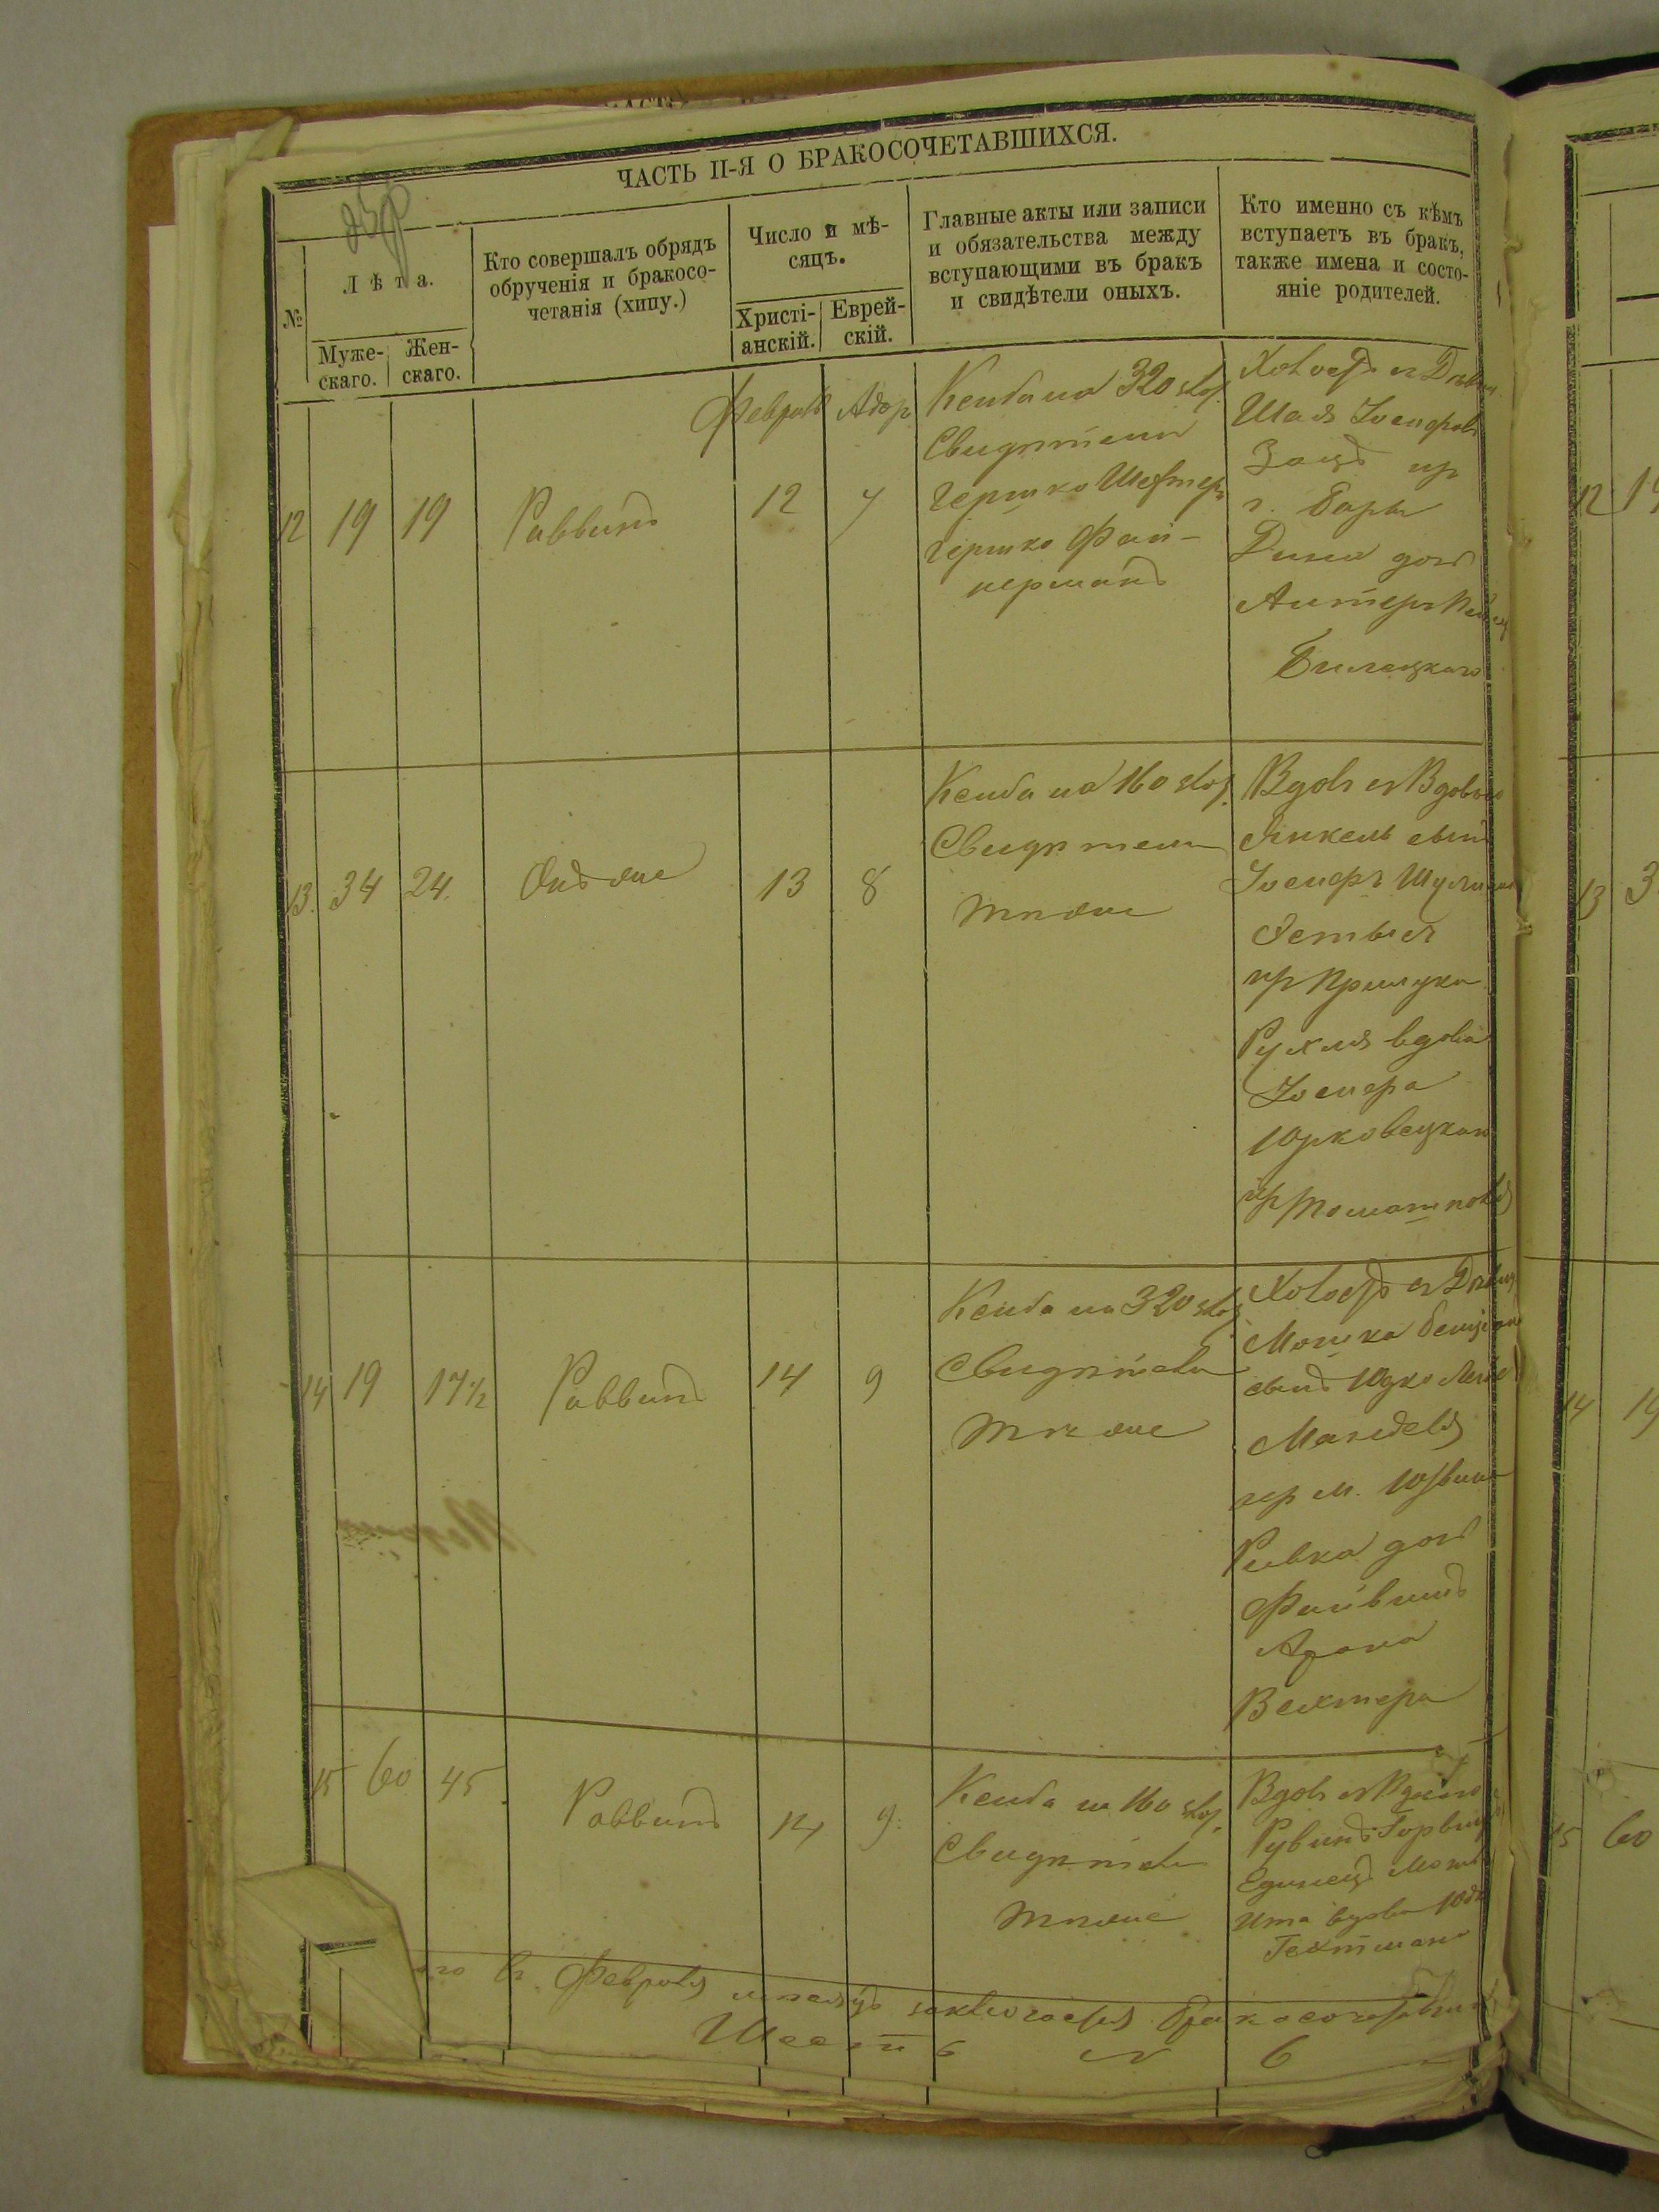 ЧАСТЬ II-Я О БРАКОСОЧЕТАВШИХСЯ.
№
Лѣта.
Муже-
скаго.
Жен-
скаго.
Кто совершалъ обрядъ
обрученія и бракосо-
четанія (хипу.)
Число и мѣ-
сяцъ.
Христі-
анскій.
Еврей-
скій.
Главные акты или записи
и обязательства между
вступающими въ бракъ
и свидѣтели оныхъ.
Кто именно съ кѣмъ
вступаетъ въ бракъ,
также имена и состо-
яніе родителей.
Февраля Адар
12 19 19 Раввинъ 12 7
Кенба на 320 злот.
Свидѣтели
Гершко Шехтеръ
Гершко Фай-
нерманъ
Холостъ съ Дѣвиц.
Шая Іосифовъ
Заицъ из
г. Бара
Дина дочь
Битецкаго
13. 34 24. Онъ же 13 8
Кенба на 160 злот.
Свидѣтели
тѣ же
Вдовъ съ Вдовою
Янкель сынъ
Іосифъ Шулима
пр Прилука
Рухля вдова
Іосифа
Юрковецкаго
пр Томашполя
14 19 17½ Раввинъ 14 9
Кенба на 320 злот
Свидѣтели
тѣ же
Холостъ съ Дѣвиц
Мошка Бенціонъ
сынъ Юдко Лейб
Манделя
пр м. Юзвина
Ривка дочь
Файвишъ
Арона
Вехтера
15 60 45 Раввинъ 14 9.
Кенба на 160 злот.
Свидѣтели
тѣ же
Вдовъ съ Вдовою
Рувинъ Горвиц
Единецъ
Ита вдова Юд
Гехтмана
въ Февраля мѣсяцъ заключается бракосочетавших
Шесть № 6
12 19
13 3
14 19
15 60